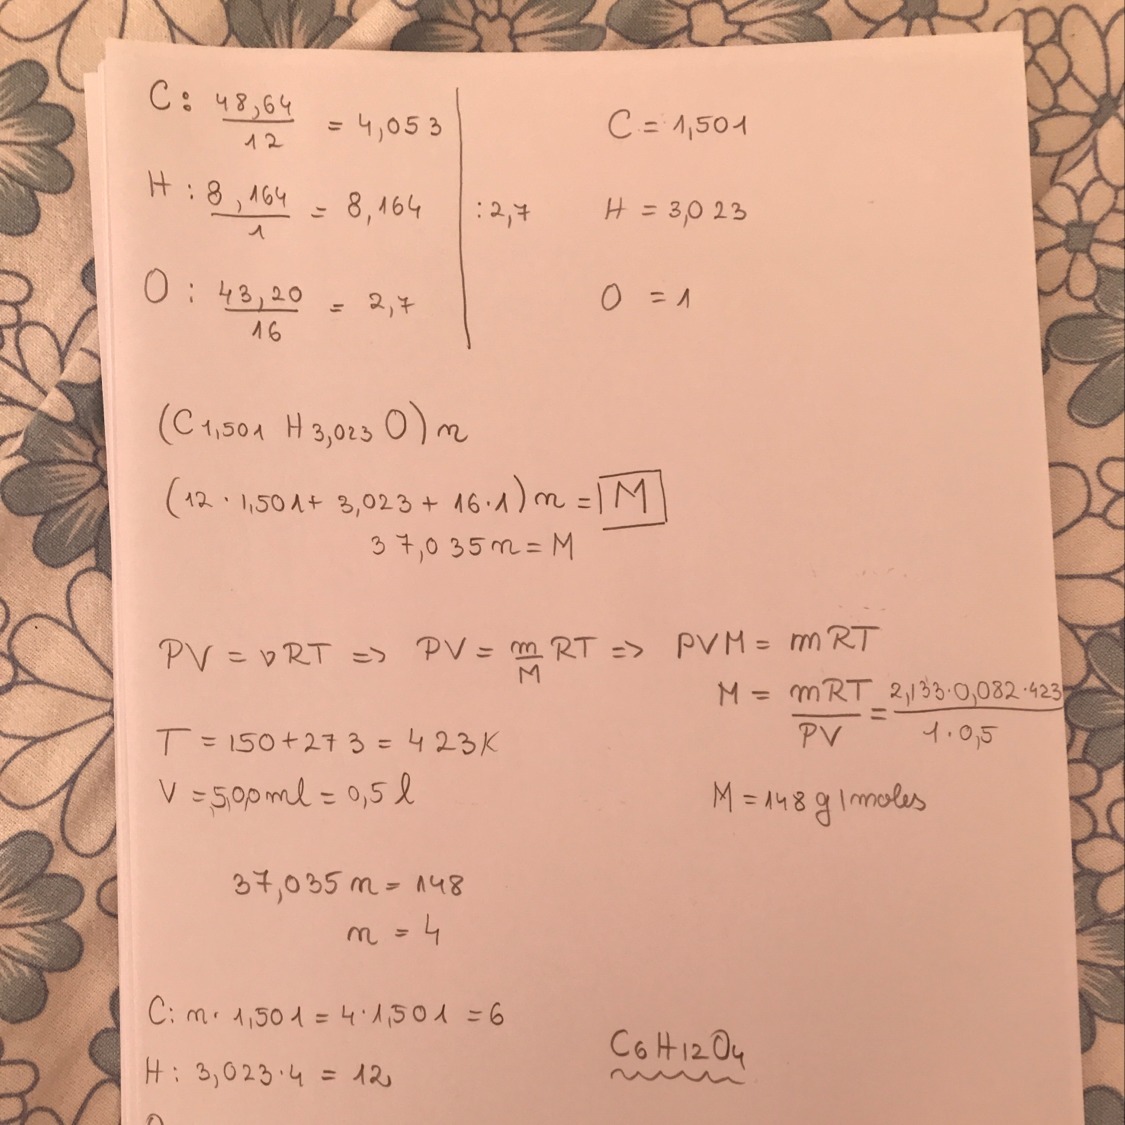 C: 48,64/12 = 4,053
H: 8,164/1 = 8,164
O: 43,20/16 = 2,7
:2,7
C = 1,501
H = 3,023
O = 1
(C1,501 H3,023 O)n
(12·1,501+ 3,023+ 16·1)n = M
37,035n = M
PV = νRT => PV = m/M RT => PVM = mRT
M = mRT/PV = 2,133·0,082·423/1·0,5
T = 150+273 = 423K
V = 500ml = 0,5 l
M = 148 g/moles
37,035 n = 148
n = 4
C: n· 1,501 = 4·1,501 = 6
H: 3,023·4 = 12
C6H12O4